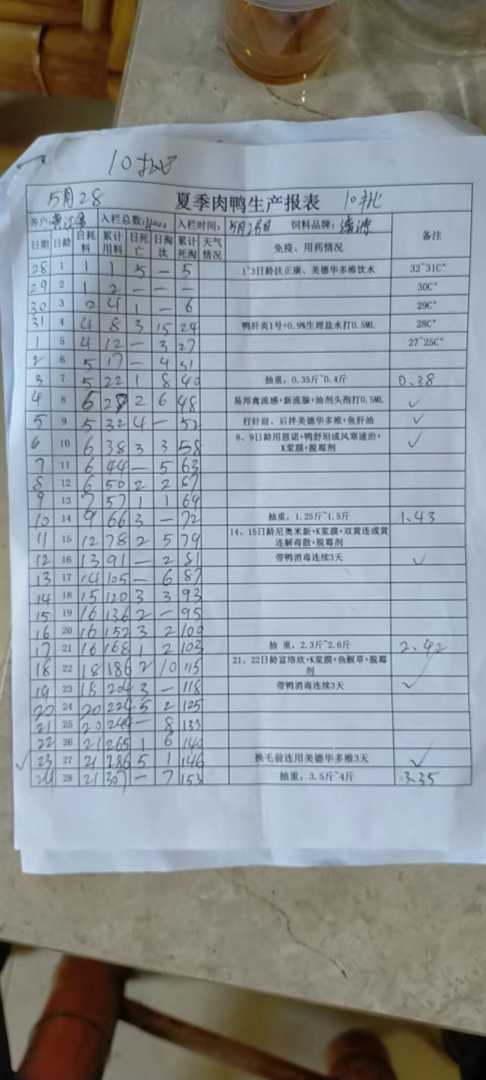 10批
5月28 夏季肉鸭生产报表 10批
客户: 入栏总数: 入栏时间: 5月28日 饲料品牌:
日期 日龄 日耗料 累计用料 日死亡 日淘汰 累计死淘 天气情况 免疫、用药情况 备注
28 1 1 1 5 — 5 1~3日龄扶正康、美德华多维饮水 32~31C°
29 2 1 2 — — — 30C°
30 3 2 4 1 — 6 29C°
31 4 4 8 3 15 24 鸭肝炎1号+0.9%生理盐水打0.5ML 28C°
1 5 4 12 — 3 27 27~25C°
2 6 5 17 — 4 31
3 7 5 22 1 8 40 抽重：0.35斤~0.4斤 0.38
4 8 6 28 2 6 48 易邦禽流感+新流腺+油剂头孢打0.5ML ✓
5 9 5 32 4 — 52 打针前、后拌美德华多维+鱼肝油 ✓
6 10 6 38 3 3 58 8、9日龄用恩诺+鸭舒坦或风寒通治+K浆膜+脱霉剂 ✓
7 11 6 44 — 5 63
8 12 6 50 2 2 67
9 13 7 57 1 1 69
10 14 9 66 3 — 72 抽重：1.25斤~1.5斤 1.43
11 15 12 78 2 5 79 14、15日龄尼奥米新+K浆膜+双黄连或黄连解毒散+脱霉剂
12 16 13 91 — 2 81 带鸭消毒连续3天 ✓
13 17 14 105 — 6 87
14 18 15 120 3 3 93
15 19 16 136 2 — 95
16 20 16 152 3 2 100
17 21 16 168 1 2 103 抽 重：2.3斤~2.6斤 2.42
18 22 18 186 2 10 115 21、22日龄富络欣+K浆膜+鱼腥草+脱霉剂
19 23 18 204 3 — 118 带鸭消毒连续3天 ✓
20 24 20 224 5 2 125
21 25 20 244 — 8 133
22 26 21 265 1 6 140
✓ 23 27 21 286 5 1 146 换毛前连用美德华多维3天 ✓
24 28 21 307 — 7 153 抽重：3.5斤~4斤 3.35